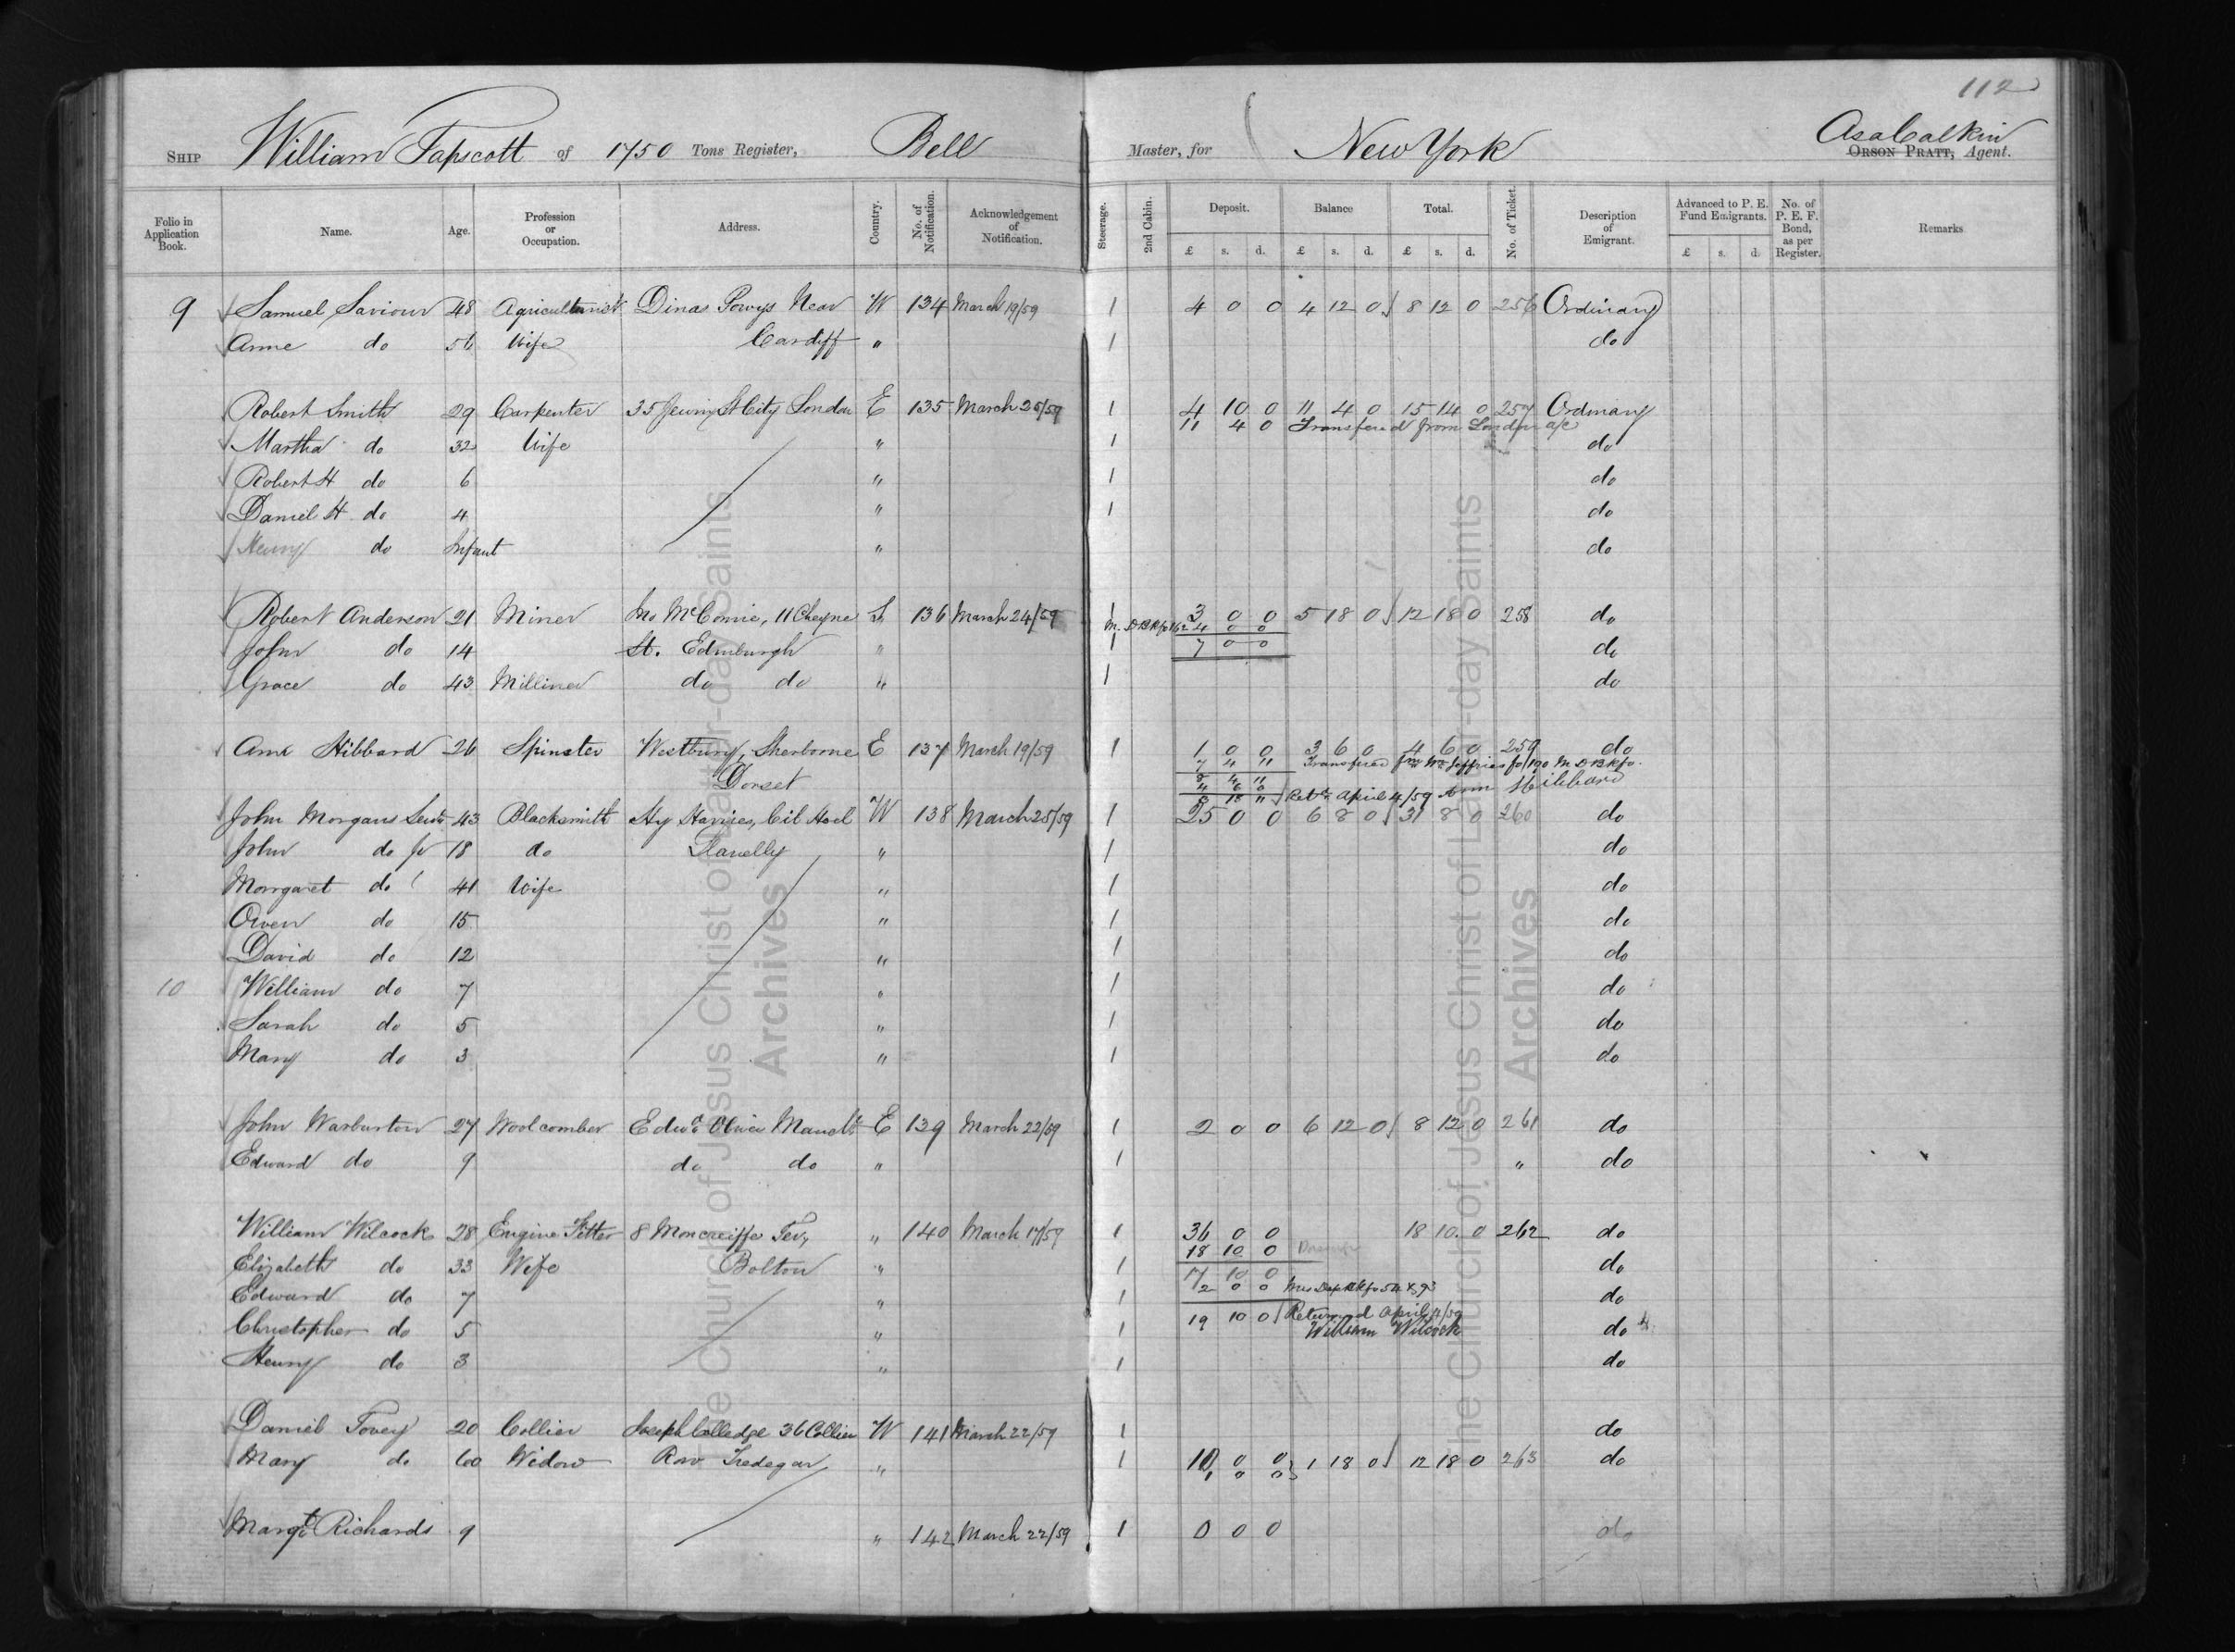 112
Ship William Tapscott of 1750 Tons Register, Bell Master, for New York Asa Calkin
Orson Pratt, Agent.
Folio in Application Book. Name. Age. Profession or Occupation. Address. Country. No. of Notification. Acknowledgement of Notification. Steerage. 2nd Cabin. Deposit. Balance Total. No. of Ticket. Description of Emigrant. Advanced to P. E. Fund Emigrants. No. of P. E. F. Bond, as per Register. Remarks
£ s. d. £ s. d. £ s. d. £ s. d.
9 Samuel Saviour 48 Agriculturist Dinas Powys Near W 134 March 19/59 1 4 0 0 4 12 0 8 12 0 256 Ordinary
Anne do 56 Wife Cardiff " 1 do
Robert Smith 29 Carpenter 35 Jewry St City London E 135 March 26/59 1 4 10 0 11 4 0 15 14 0 257 Ordinary
11 4 0 Transfered from London a/c
Martha do 32 Wife " 1 do
Robert H do 6 " 1 do
Daniel H do 4 " 1 do
Henry do Infant " do
Robert Anderson 21 Miner Mc Comie, 11 Cheyne S 136 March 24/59 1 3 0 0 5 18 0 12 18 0 258 do
4 0 0
John do 14 St. Edinburgh " 1 7 0 0 do
Grace do 43 Milliner do do " 1 do
Ann Hibbard 26 Spinster Westbury, Sherborne E 137 March 19/59 1 1 0 0 3 6 0 4 6 0 259 do
7 4 11 Transfered from Wm Jeffries fo/190 M D Bk fo.
Dorset 8 4 11
4 6 0
3 18 11 Retd April 4/59 Ann Hibbard
John Morgans Senr 43 Blacksmith W 138 March 25/59 1 25 0 0 6 8 0 31 8 0 260 do
John do Jr 18 do Llanelly " 1 do
Morrgaret do 41 Wife " 1 do
Owen do 15 " 1 do
David do 12 " 1 do
10 William do 7 " 1 do
Sarah do 5 " 1 do
Mary do 3 " 1 do
John Warburton 27 Woolcomber Edwd Oliver Manchr E 139 March 22/59 1 2 0 0 6 12 0 8 12 0 261 do
Edward do 9 do do " 1 " do
William Wilcock 28 Engine Fitter 8 Moncreiffe Ter, " 140 March 17/59 1 36 0 0 18 10 0 262 do
18 10 0
Elizabeth do 33 Wife Bolton " 1 do
17 10 0
Edward do 7 " 1 2 0 0 do
Christopher do 5 " 1 19 10 0 Returned April 4/59 do
William Wilcock
Henry do 3 " 1 do
Daniel Tovey 20 Collier Joseph Colledge 36 Collier W 141 March 22/59 1 do
Mary do 60 Widow Row Tredegar " 1 10 0 0 1 18 0 12 18 0 263 do
1 0 0
Margt Richards 9 " 142 March 22/59 1 0 0 0 do
The Church of Jesus Christ of Latter-day Saints
Archives
The Church of Jesus Christ of Latter-day Saints
Archives